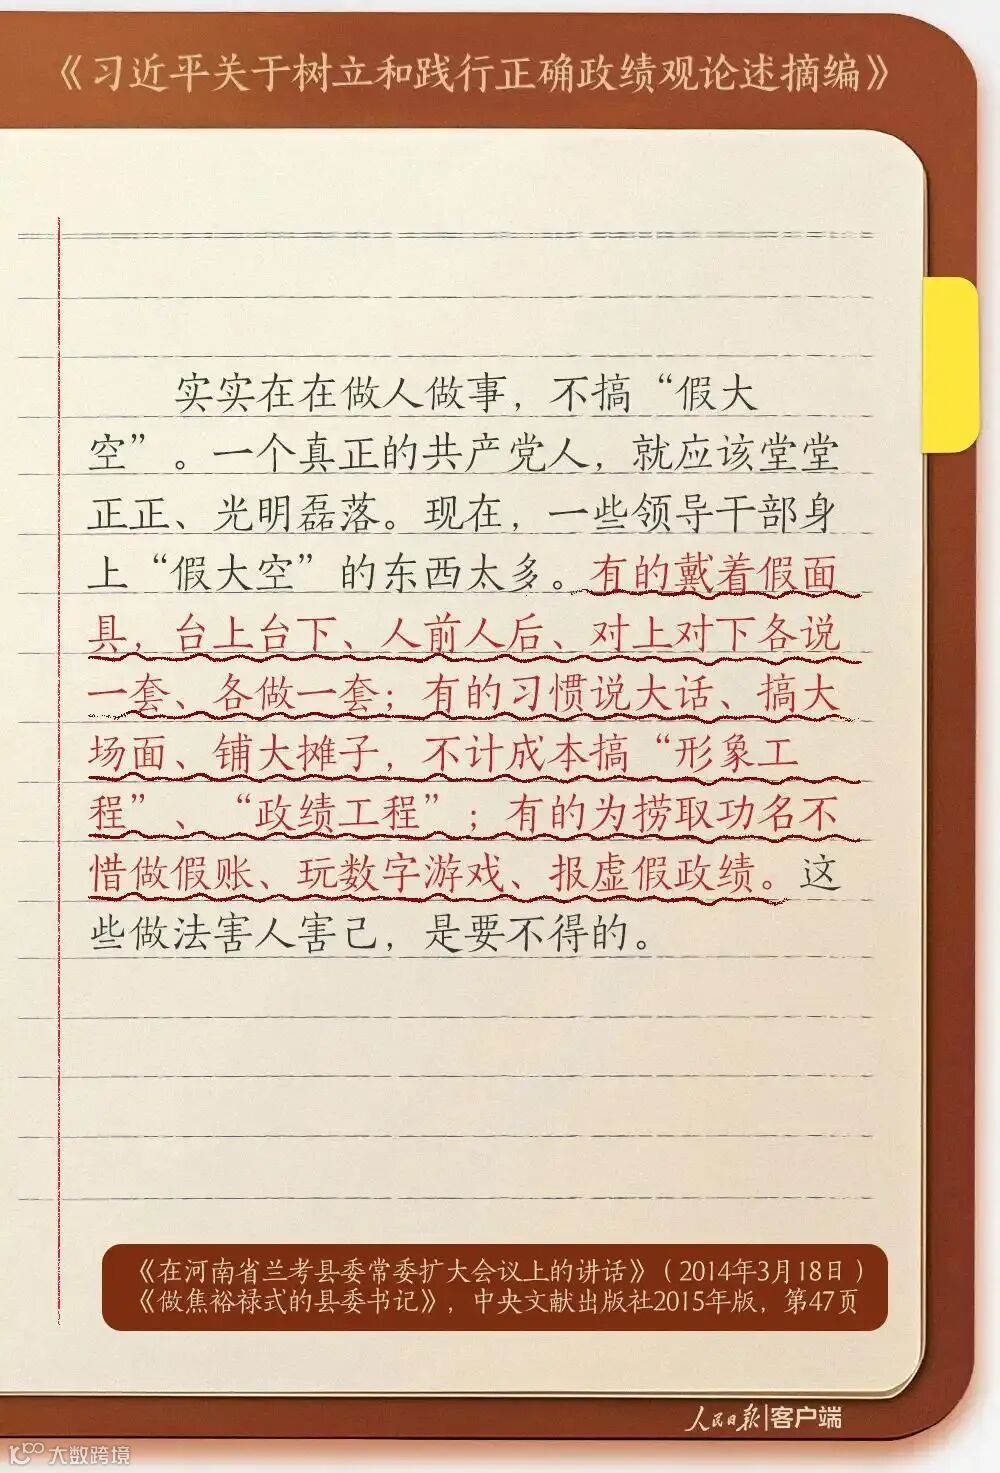 《习近平关于树立和践行正确政绩观论述摘编》
实实在在做人做事，不搞“假大
空”。一个真正的共产党人，就应该堂堂
正正、光明磊落。现在，一些领导干部身
上“假大空”的东西太多。有的戴着假面
具，台上台下、人前人后、对上对下各说
一套、各做一套；有的习惯说大话、搞大
场面、铺大摊子，不计成本搞“形象工
程”、“政绩工程”；有的为捞取功名不
惜做假账、玩数字游戏、报虚假政绩。这
些做法害人害己，是要不得的。
《在河南省兰考县委常委扩大会议上的讲话》（2014年3月18日）
《做焦裕禄式的县委书记》，中央文献出版社2015年版，第47页
人民日报|客户端
大数跨境